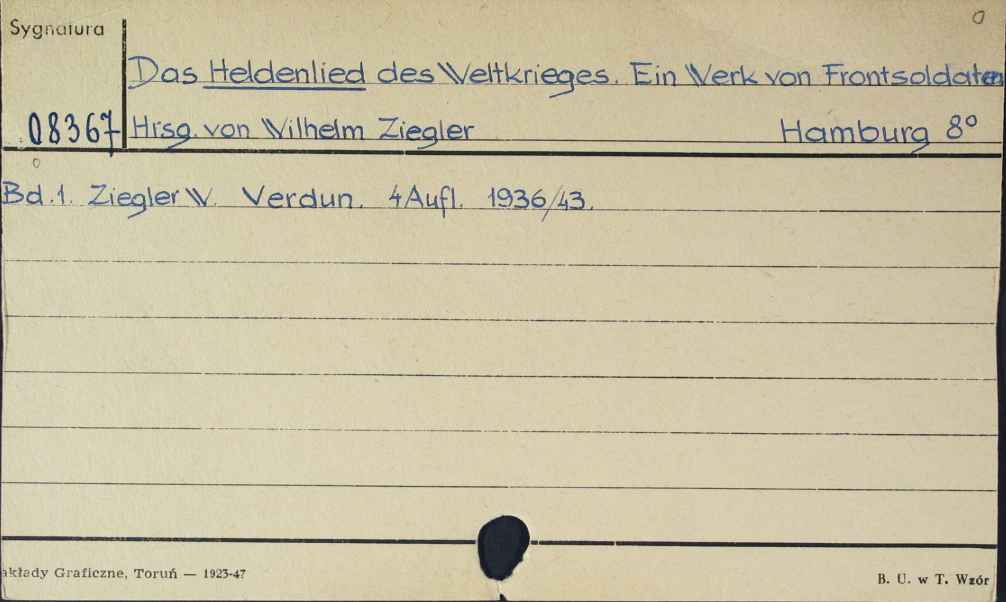 Sygnatura
Das Heldenlied des Weltkrieges. Ein Werk von Frontsoldaten
08367 Hrsg. von Wilhelm Ziegler Hamburg 8°
Bd.1. Ziegler W. Verdun. 4 Aufl. 1936/43.
akłady Graficzne, Toruń — 1923-47
B. U. w T. Wzór